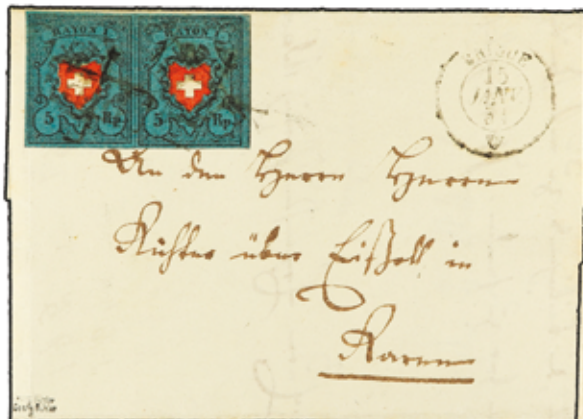 RAYON I.
5 Rp.
RAYON I.
5 Rp.
15
JANV
An den Herrn Herrn
Richter über in
Raren